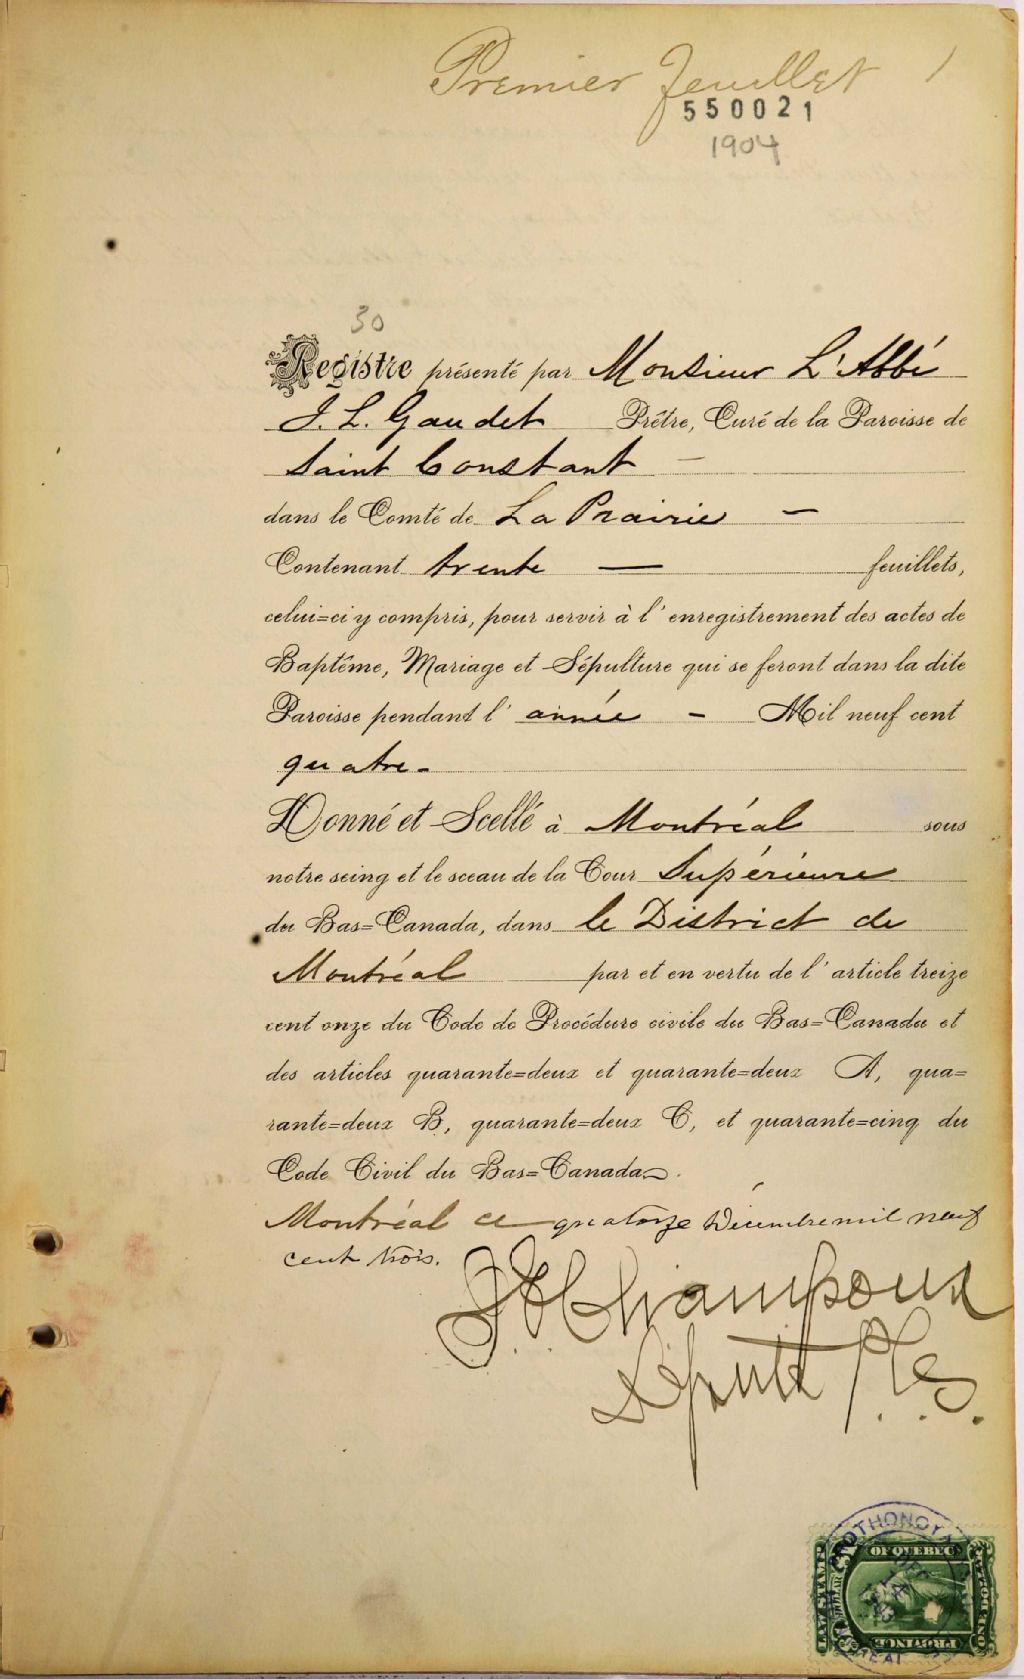 Premier Feuillet 1
550021
1904
30
Registre présenté par Monsieur L'Abbé
J. L. Gaudet Prêtre, Curé de la Paroisse de
Saint Constant –
dans le Comté de La Prairie –
Contenant trente — feuillets,
celui=ci y compris, pour servir à l'enregistrement des actes de
Baptême, Mariage et Sépulture qui se feront dans la dite
Paroisse pendant l'année – Mil neuf cent
quatre –
Donné et Scellé à Montréal sous
notre seing et le sceau de la Cour Supérieure
du Bas=Canada, dans le District de
Montréal par et en vertu de l'article treize
cent onze du Code de Procédure civile du Bas=Canada et
des articles quarante=deux et quarante=deux A, qua=
rante=deux B, quarante=deux C, et quarante=cinq du
Code Civil du Bas=Canada.
Montréal ce quatorze Décembre mil neuf
cent trois.
Champoux
Député P.C.S.
PROTHONOT
OF QUEBEC
LAW STAMP
DEC
14
PROVINCE